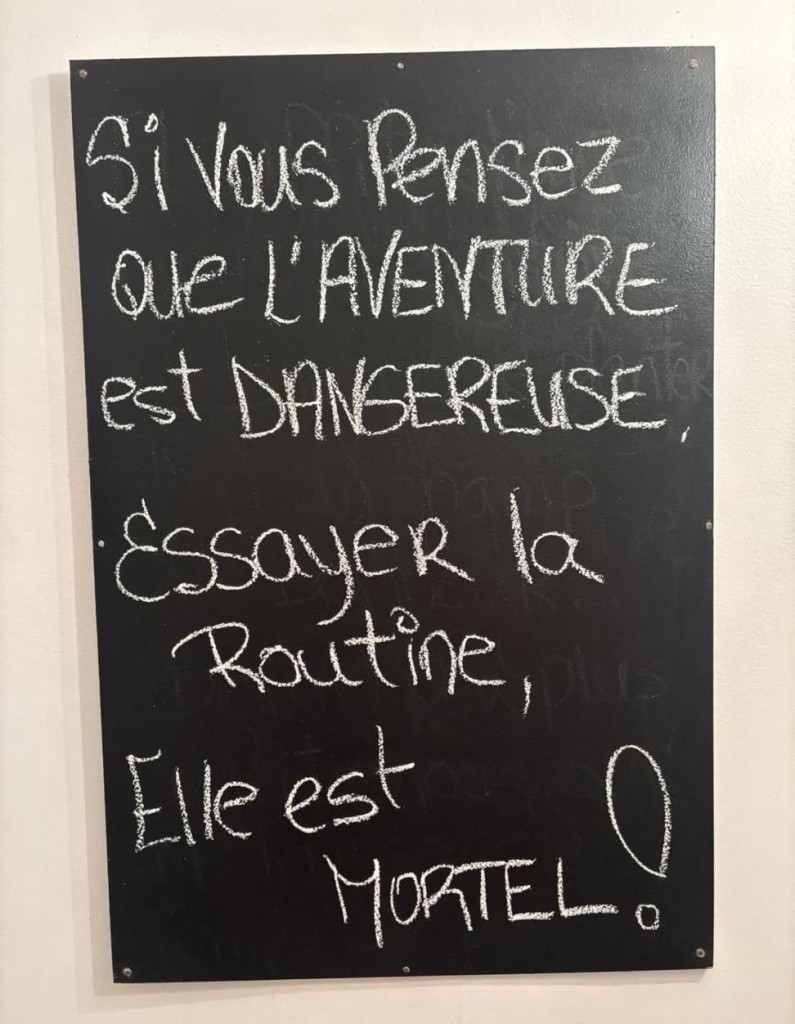 Si Vous Pensez
que L'AVENTURE
est DANGEREUSE,
Essayer la
Routine,
Elle est
MORTEL!